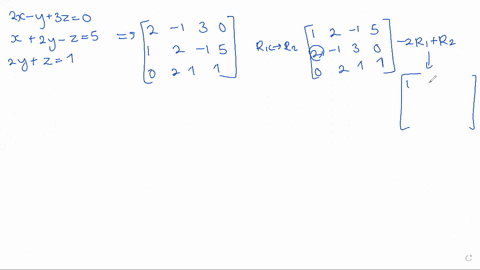 2x-y+3z=0
x+2y-z=5
2y+z=1
=>
2 -1 3 0
1 2 -1 5
0 2 1 1
R1<->R2
1 2 -1 5
2 -1 3 0
0 2 1 1
-2R1+R2
1